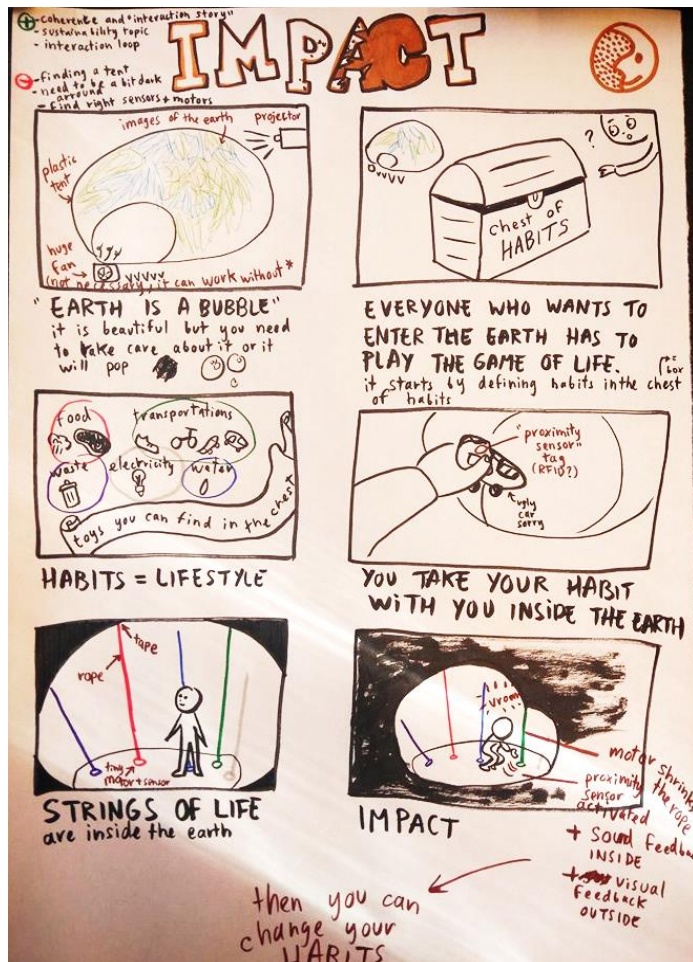 + - coherence and "interaction story"
- sustainability topic
- interaction loop
- - finding a tent
- need to be a bit dark
arround
- find right sensors + motors
IMPACT
images of the earth
projector
plastic
tent
huge
fan
(not necessary, it can work without *
"EARTH IS A BUBBLE"
it is beautiful but you need
to take care about it or it
will pop
?
chest of
HABITS
EVERYONE WHO WANTS TO
ENTER THE EARTH HAS TO
PLAY THE GAME OF LIFE.
it starts by defining habits in the chest
of habits
box
food
transportations
waste
electricity
water
toys you can find in the chest
HABITS = LIFESTYLE
"proximity
sensor"
tag
(RFID?)
ugly
car
sorry
YOU TAKE YOUR HABIT
WITH YOU INSIDE THE EARTH
tape
rope
tiny
motor + sensor
STRINGS OF LIFE
are inside the earth
Vroom
motor shrinks
the rope
proximity
sensor
activated
+ Sound feedback
INSIDE
+ visual
Feedback
OUTSIDE
IMPACT
then you can
change your
HABITS